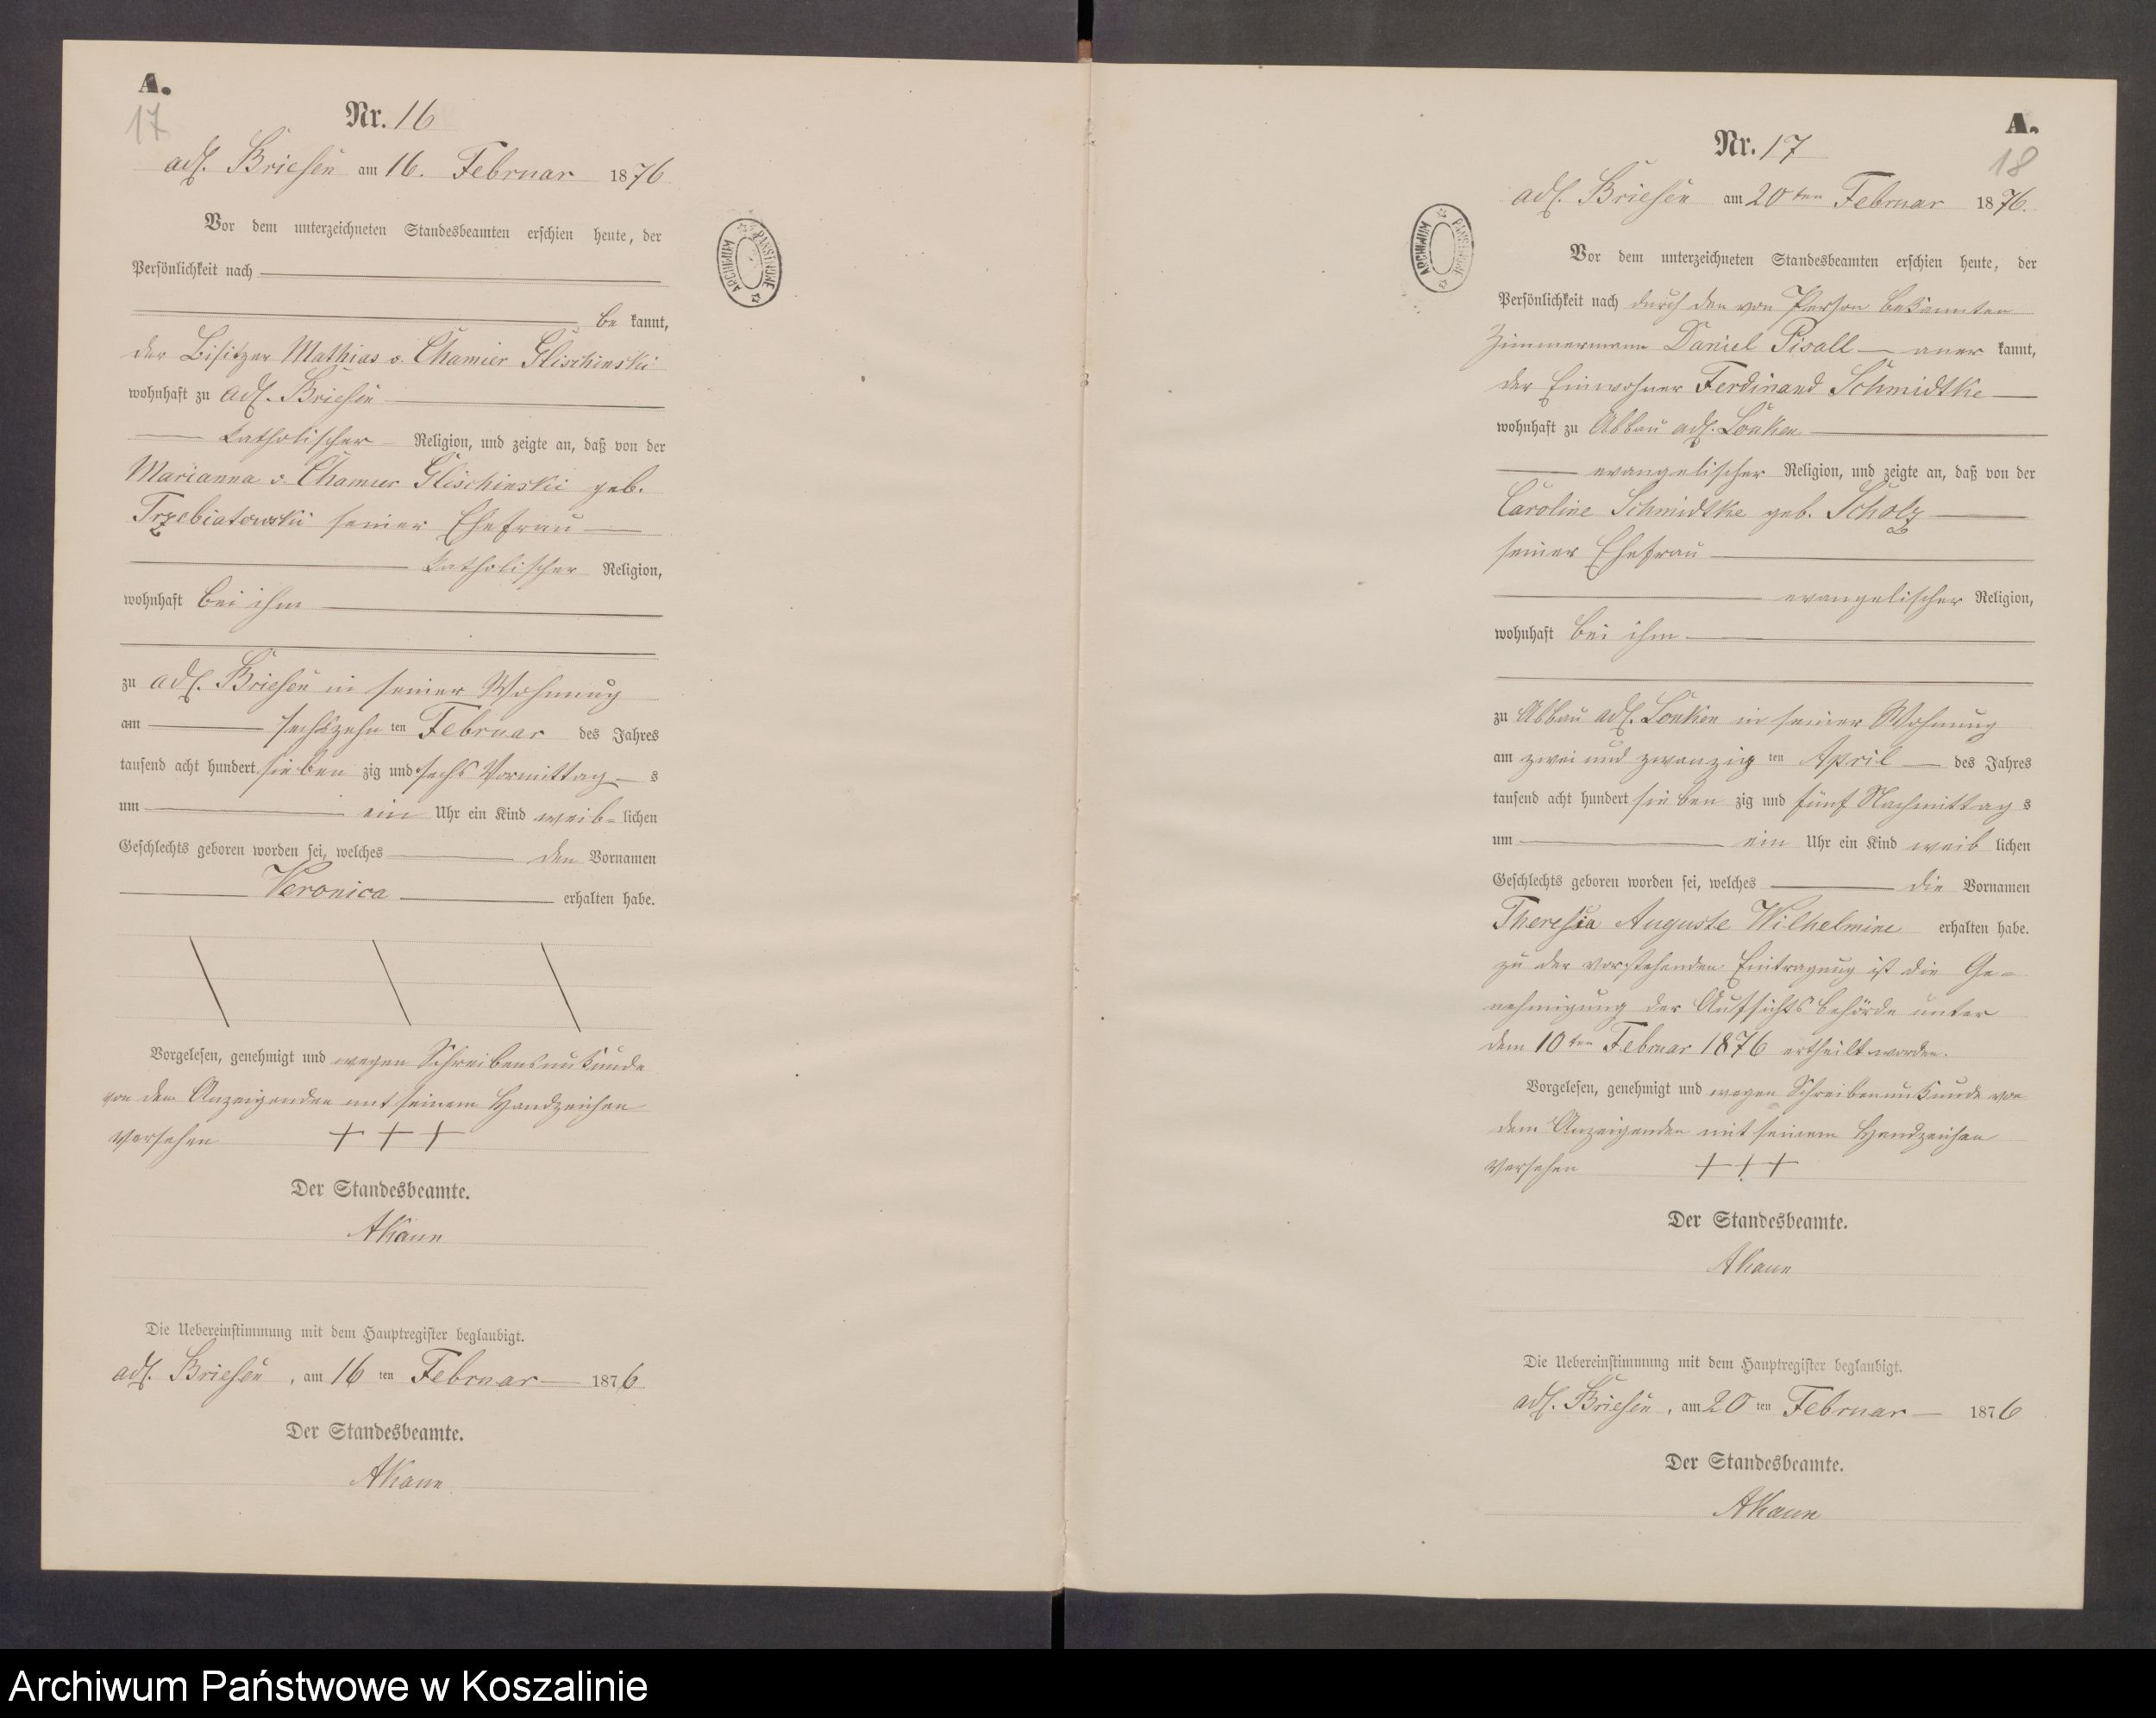 A.
17
Nr. 16
adl. Briesen am 16. Februar 1876
Vor dem unterzeichneten Standesbeamten erschien heute, der
Persönlichkeit nach
be kannt,
der Besitzer Mathias v. Chamier Glischinski
wohnhaft zu adl. Briesen
katholischer Religion, und zeigte an, daß von der
Marianna v. Chamier Glischinski geb.
Trzebiatowski seiner Ehefrau
katholischer Religion,
wohnhaft bei ihm
zu adl. Briesen in seiner Wohnung
am sechszehn ten Februar des Jahres
tausend acht hundert sieben zig und sechs Vormittag s
um ein Uhr ein Kind weib= lichen
Geschlechts geboren worden sei, welches den Vornamen
Veronica erhalten habe.
Vorgelesen, genehmigt und wegen Schreibensunkunde
von dem Anzeigenden mit seinem Handzeichen
versehen + + +
Der Standesbeamte.
AKaun
Die Uebereinstimmung mit dem Hauptregister beglaubigt.
adl. Briesen, am 16 ten Februar 1876
Der Standesbeamte.
AKaun
ARCHIWUM PAŃSTWOWE
A.
18
Nr. 17
adl. Briesen am 20ten Februar 1876.
Vor dem unterzeichneten Standesbeamten erschien heute, der
Persönlichkeit nach durch den von Person bekannten
Zimmermann Daniel Pisall aner kannt,
der Einwohner Ferdinand Schmidtke
wohnhaft zu Abbau adl. Lonken
evangelischer Religion, und zeigte an, daß von der
Caroline Schmidtke geb. Scholz
seiner Ehefrau
evangelischer Religion,
wohnhaft bei ihm
zu Abbau adl. Lonken in seiner Wohnung
am zwei und zwanzig ten April des Jahres
tausend acht hundert sieben zig und fünf Nachmittag s
um ein Uhr ein Kind weib lichen
Geschlechts geboren worden sei, welches die Vornamen
Theresia Auguste Wilhelmine erhalten habe.
zu der vorstehenden Eintragung ist die Ge=
nehmigung der Aufsichts behörde unter
dem 10ten Februar 1876 ertheilt worden.
Vorgelesen, genehmigt und wegen Schreibenunkunde von
dem Anzeigenden mit seinem Handzeichen
versehen + + +
Der Standesbeamte.
AKaun
Die Uebereinstimmung mit dem Hauptregister beglaubigt.
adl. Briesen, am 20 ten Februar 1876
Der Standesbeamte.
AKaun
ARCHIWUM PAŃSTWOWE
Archiwum Państwowe w Koszalinie